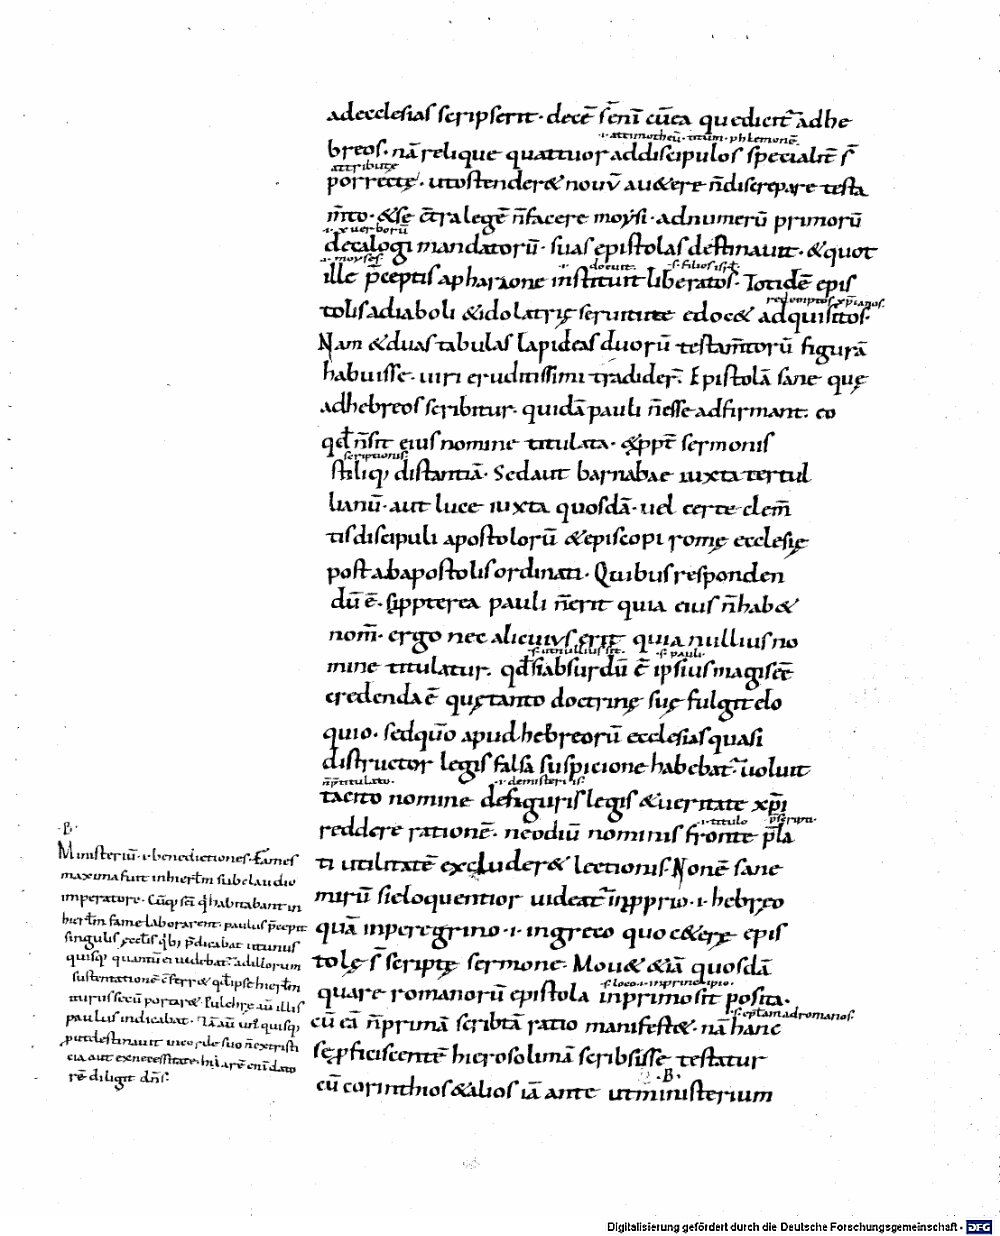 adecclesias scripserit · decē s̄ enī cū ea quę dicit̄ adhe
·i· attimotheū · titum · phylemonē
breos · nā relique quattuor addiscipulos specialit̄ s̄
attributę
porrectę · ut ostender& nouū au&ere n̄ discrepare testa
m̄to · &se c̄tra legē n̄ facere moysi · adnumerū primorū
·i· x uerborū
decalogi mandatorū · suas epistolas destinauit · &quot
·i· moyses · docuit · s· filios isrł
ille p̄ceptis a pharaone instituit liberatos · Totidē epis
redemptos xp̄ianos
tolis a diaboli &idolatrię seruitute edoc& adquisitos ·
Nam &duas tabulas lapideas duorū testam̄torū figurā
habuisse · uiri eruditissimi tradider̄ · Epistolā sane quę
adhebreos scribitur · quidā pauli n̄ esse adfirmant · eo
qd̄ n̄ sit eius nomine titulata · &ppt̄ sermonis
scriptionis
stiliq; distantiā · Sed aut barnabae iuxta tertul
lianū · aut luce iuxta quosdā · uel certe clem̄
tis discipuli apostolorū &episcopi romę ecclesię
post ab apostolis ordinati · Quibus responden
dū ē · si ppterea pauli n̄ erit quia eius n̄ hab&
nom̄ · ergo nec alicuius erit quia nullius no
s· ut nullius sit · s· pauli
mine titulatur · qd̄ si absurdū ē ipsius magis eē
credenda ē quę tanto doctrinę suę fulgit elo
quio · sed qūo apud hebreorū ecclesias quasi
distructor legis falsa suspicione habebat̄ uoluit
n̄ p̄titulato · ·i· demisteriis
tacito nomine defiguris legis &ueritate xp̄i
·i· titulo p̄scripti
reddere rationē · ne odiū nominis fronte p̄la
ti utilitatē excluder& lectionis · Non ē sane
mirū si eloquentior uideat̄ in pprio ·i· hebreo
quā in peregrino ·i· in greco quo c&erę epis
tolę s̄ scriptę sermone · Mou& &iā quosdā
s· loco ·i· inprincipio
quare romanorū epistola in primo sit posita ·
·s· ep̄łam ad romanos
cū eā n̄ primā scribtā ratio manifest& · nā hanc
sę pficiscentē hierosolimā scribsisse testatur
·B·
cū corinthios &alios iā ante ut ministerium
·B·
Ministeriū ·i· benedictiones · Fames
maxima fuit in hierłm sub claudio
imperatore · Cūq; sc̄i q̄ habitabant in
hierłm fame laborarent · paulus p̄cepit
singulis ęccłis q̄b; p̄dicabat ut unus
quisq; quantū ei uidebat̄ ad illorum
sustentationē
mirus
paulus indicabat ·
put destinauit in corde suo n̄ ex tristi
cia aut ex necessitate · hilarē enī dato
rē diligit dn̄s ·
Digitalisierung gefördert durch die Deutsche Forschungsgemeinschaft · DFG